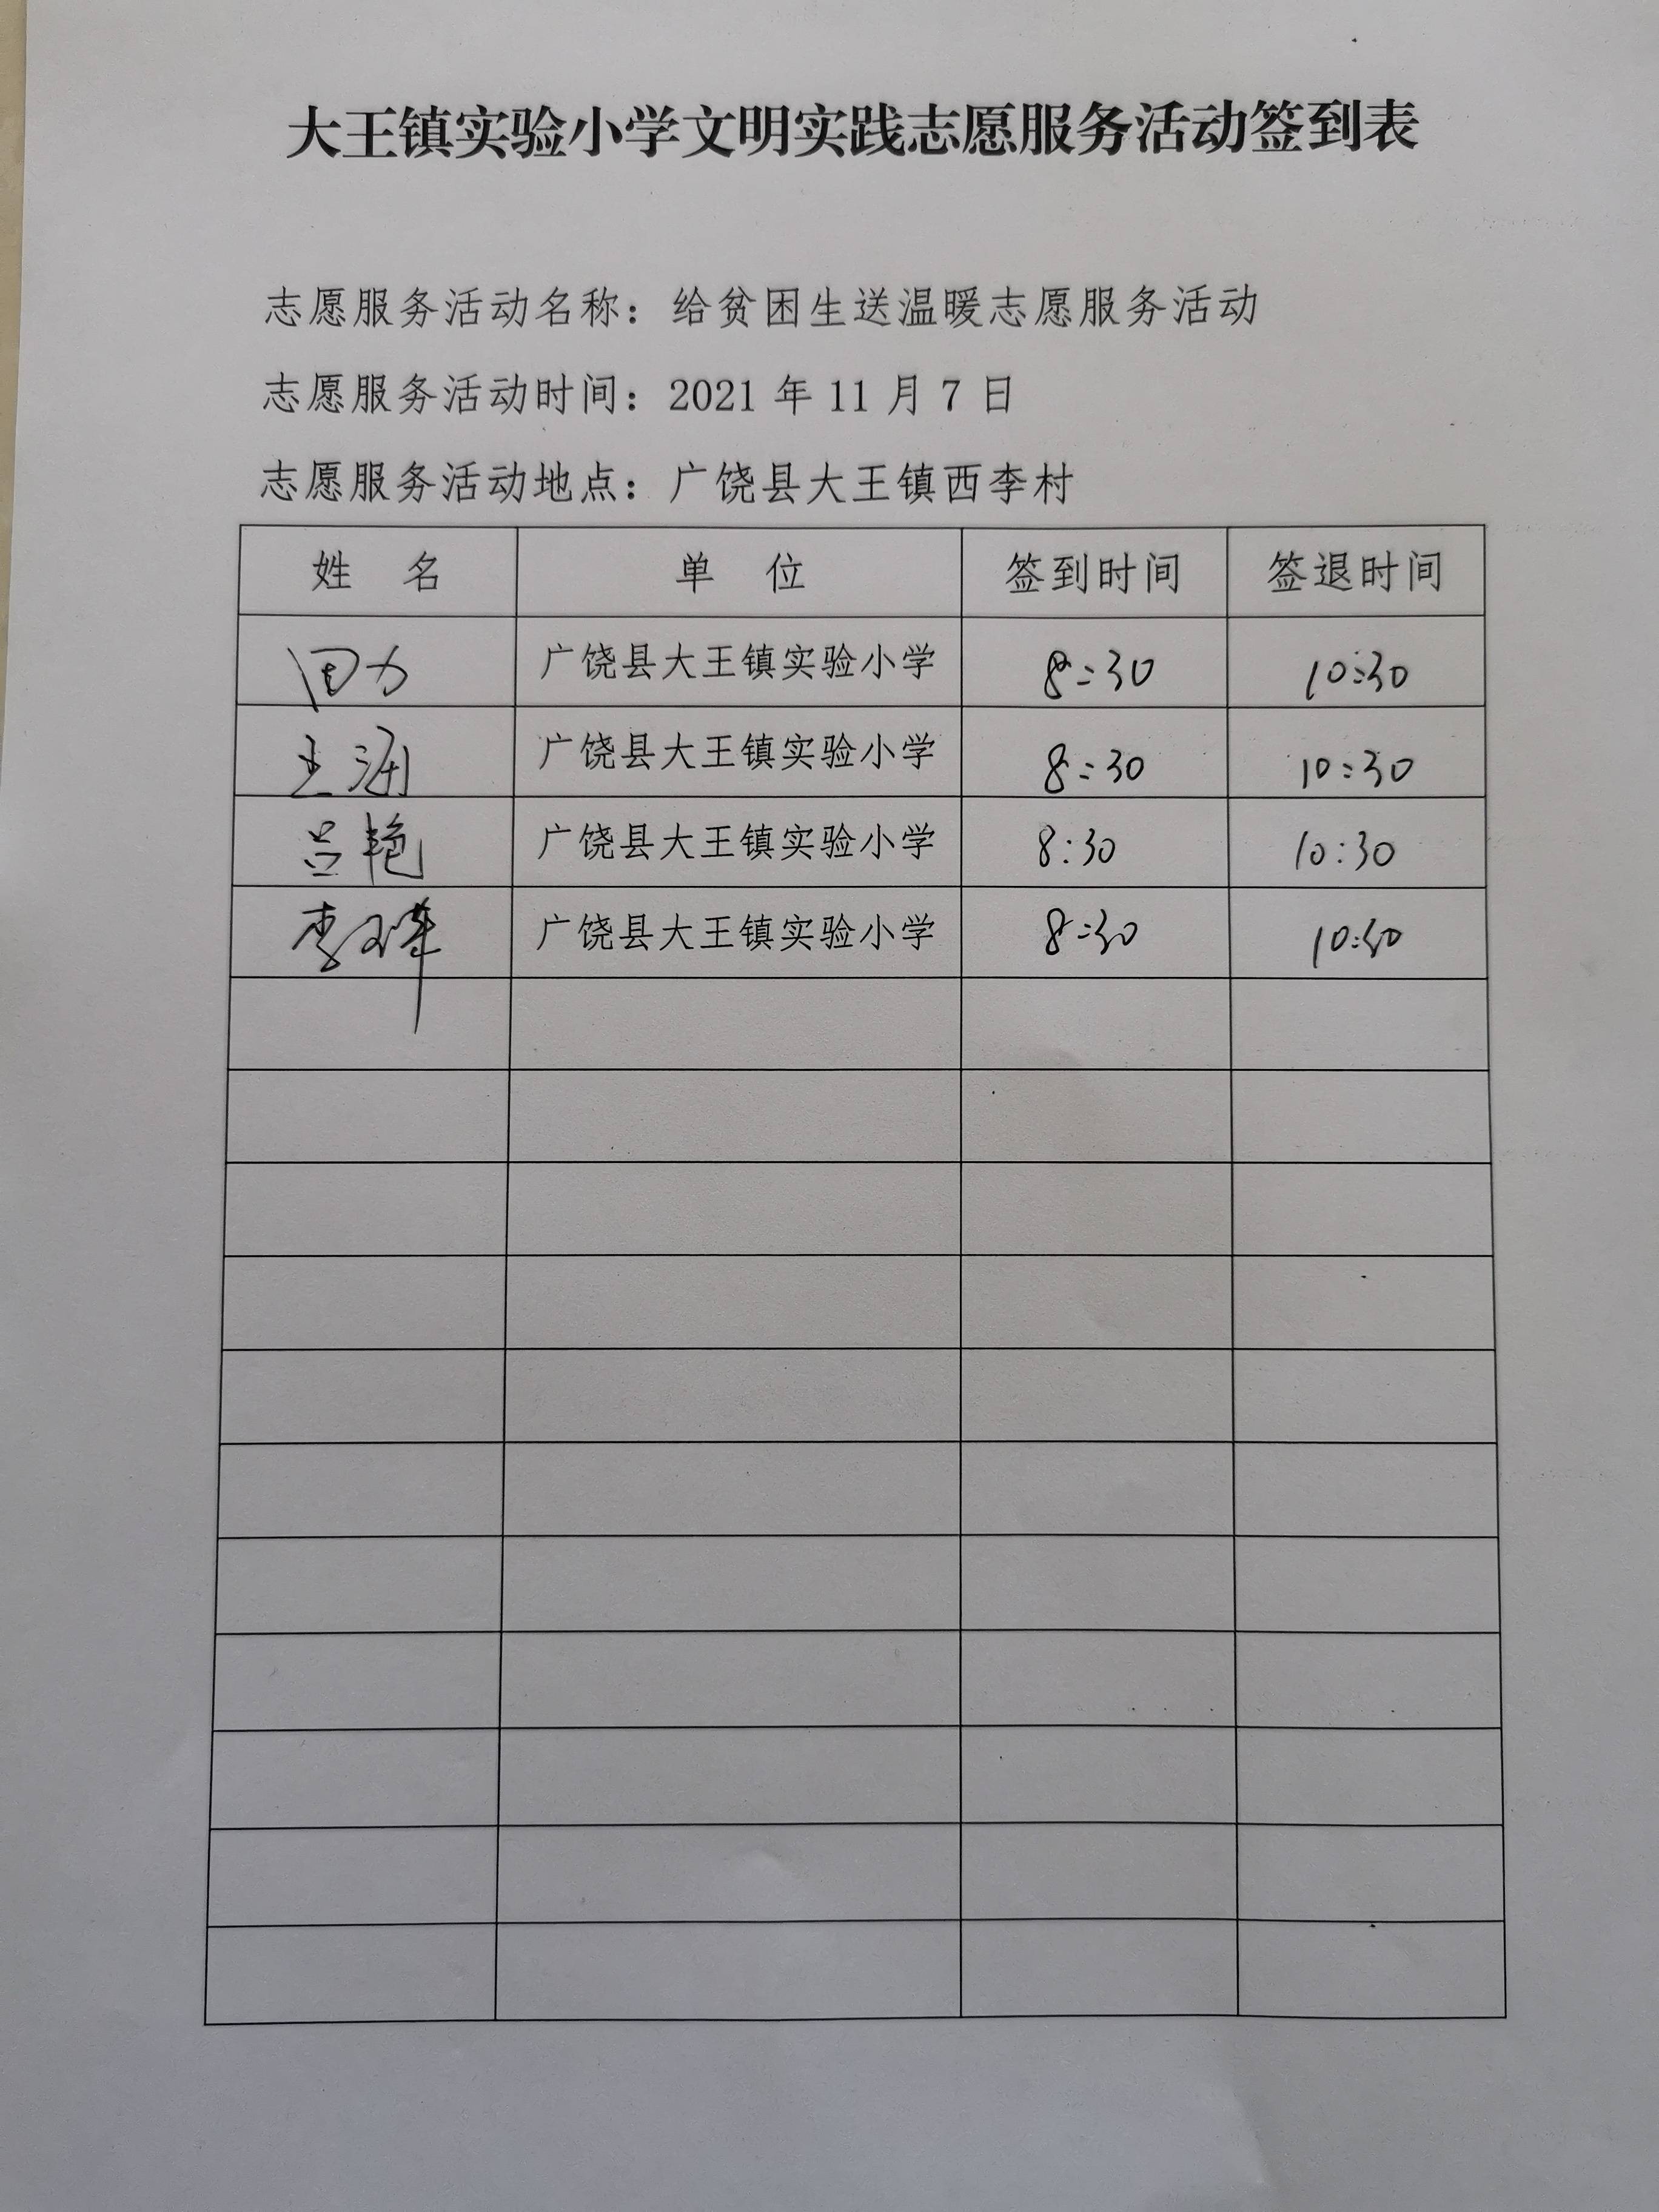 大王镇实验小学文明实践志愿服务活动签到表
志愿服务活动名称：给贫困生送温暖志愿服务活动
志愿服务活动时间：2021 年 11 月 7 日
志愿服务活动地点：广饶县大王镇西李村
姓 名 单 位 签到时间 签退时间
广饶县大王镇实验小学 8:30 10:30
王 广饶县大王镇实验小学 8:30 10:30
吕艳 广饶县大王镇实验小学 8:30 10:30
李 广饶县大王镇实验小学 8:30 10:30